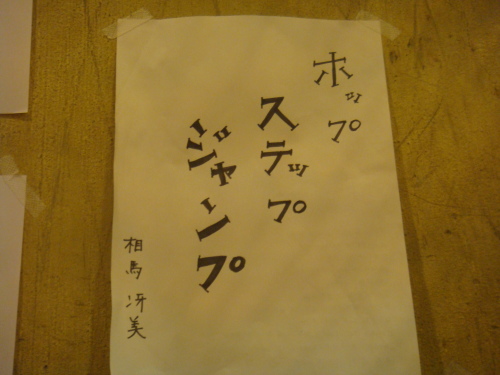 ホップ
ステップ
ジャンプ
相馬 冴美